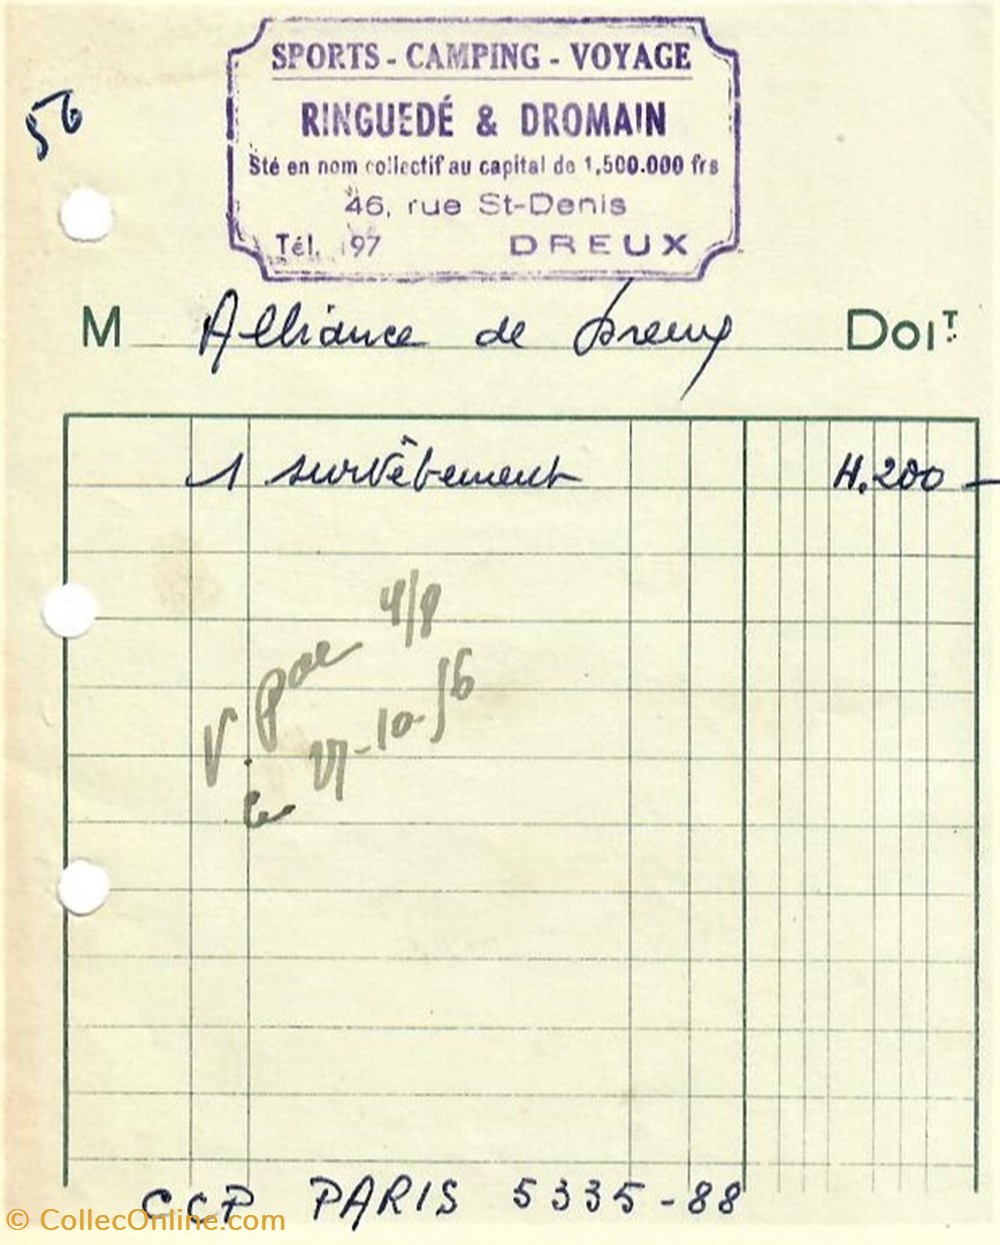 SPORTS - CAMPING - VOYAGE
RINGUEDÉ & DROMAIN
Sté en nom collectif au capital de 1,500.000 frs
46, rue St-Denis
Tél. 197 DREUX
56
M Alliance de Dreux DOIT
1 survêtement 4.200 -
V. 4/8
le 27-10-56
CCP PARIS 5335-88
© CollecOnline.com